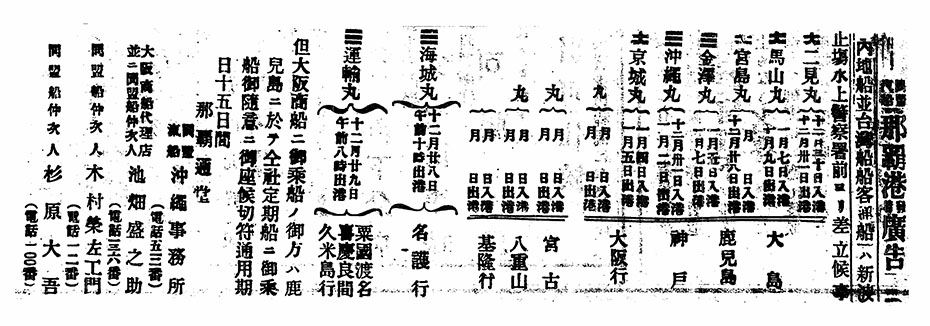 同盟汽船 那覇港出入廣告
内地船並台灣船船客通船ハ新波
止場水上警察署前ヨリ差立候事
二見丸 十二月三十日入港 十二月卅一日出港
馬山丸 一月七日入港 十二月九日出港
宮島丸 月 日入港 十二月廿八日出港
金澤丸 一月五日入港 一月七日出港
沖縄丸 十二月卅一日入港 一月二日出港
京城丸 一月四日入港 一月五日出港
丸 月 日入港 月 日出港
丸 月 日入港 月 日出港
丸 月 日入港 月 日出港
大島
鹿兒島
神戸
大阪行
宮古
八重山
基隆行
海城丸 十二月廿八日午前十時出港 名護行
運輸丸 十二月廿九日午前八時出港 粟國渡名喜慶良間久米島行
但大阪商船ニ御乘船ノ御方ハ鹿
兒島ニ於テ仝社定期船ニ御乘
船御隨意ニ御座候切符通用期
日十五日間
那覇通堂
同盟汽船 沖縄事務所
(電話五三番)
大阪商船代理店並ニ同盟船仲次人 池畑盛之助
(電話三六番)
同盟船仲次人 木村榮左工門
(電話一二番)
同盟船仲次人 杉原大吾
(電話一〇〇番)